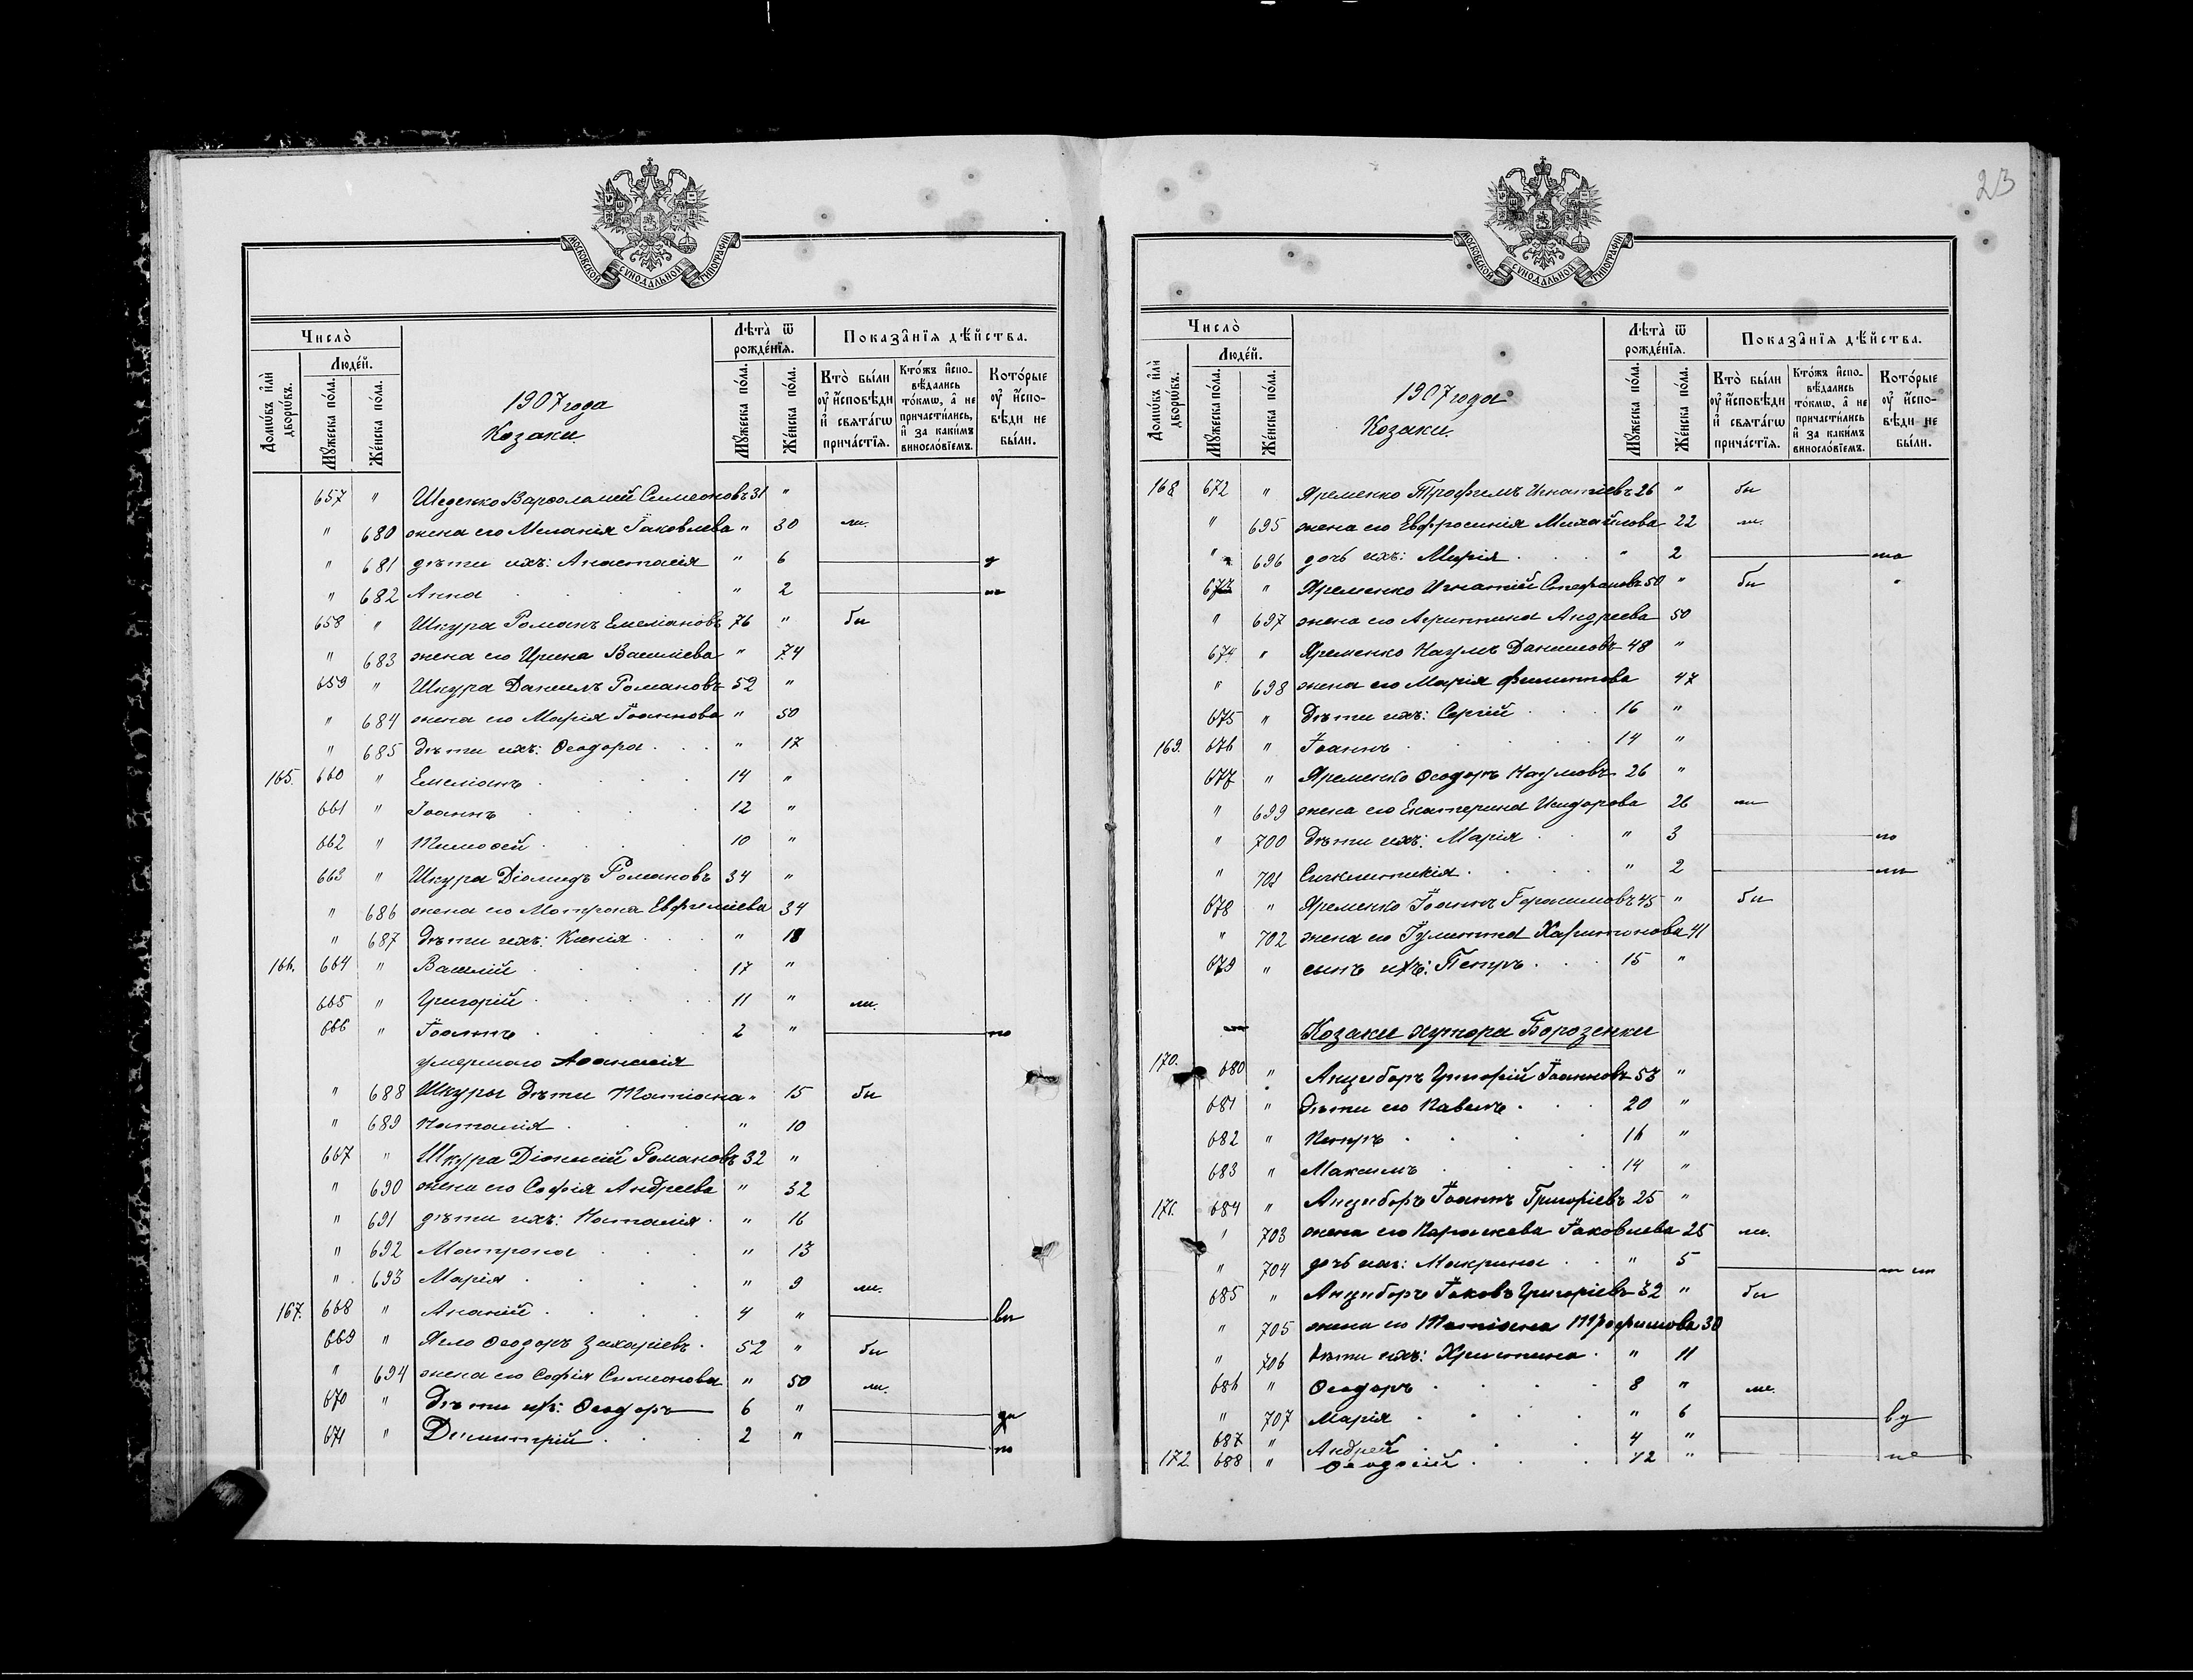 23
МОСКОВСКОЙ СУНОДАЛЬНОЙ ТИПОГРАФІИ
Число̀
Людей.
Домѡвъ и҆лѝ дворѡвъ.
Мꙋжеска по́ла.
Же́нска по́ла.
1907 года
Козаки
Лѣта̀ ѿ рожде́нїѧ.
Мꙋжеска по́ла.
Же́нска по́ла.
Показа̂нїѧ дѣ́йства.
Кто̀ бы́ли оу҆ и҆́сповѣди и҆ свѧта́гѡ прича́стїѧ.
Кто́жъ и҆спо-вѣ́дались то́кмѡ, а҆ не причасти́лись, и҆ за каки́мъ виносло́вїемъ.
Кото́рые оу҆ и҆́спо-вѣди не бы́ли.
657 " Шеденко Варѳоломей Симеоновъ 31 "
" 680 жена его Меланія Іаковлева " 30 ли.
" 681 дѣти ихъ: Анастасія " 6
" 682 Анна " 2
658 " Шкура Романъ Емеліановъ 76 " бы
" 683 жена его Ирина Василіева " 74
659 " Шкура Даніилъ Романовъ 52 "
" 684 жена его Марія Іоаннова " 50
" 685 дѣти ихъ: Ѳеодора " 17
165. 660 " Емеліанъ 14 "
661 " Іоаннъ 12 "
662 " Тимоѳей 10 "
663 " Шкура Діомидъ Романовъ 34 "
" 686 жена его Матрона Евфиміева 34
" 687 дѣти ихъ: Ксенія " 18
166. 664 " Василій 17 "
665 " Григорій 11 " ли.
666 " Іоаннъ 2 " по
умершаго Аѳанасія
" 688 Шкуры дѣти Татіана " 15 бы
" 689 Наталія " 10
667 " Шкура Діонисій Романовъ 32 "
" 690 жена его Софія Андреева " 32
" 691 дѣти ихъ: Наталія " 16
" 692 Матрона " 13
" 693 Марія " 9 ли.
167. 668 " Ананій 4 "
669 " Ѳеодоръ Захаріевъ 52 " бы
" 694 жена его Софія Симеонова " 50 ли.
670 " Дѣти ихъ: Ѳеодоръ 6 "
671 " Димитрій 2 " по
МОСКОВСКОЙ СУНОДАЛЬНОЙ ТИПОГРАФІИ
Число̀
Людей.
Домѡвъ и҆лѝ дворѡвъ.
Мꙋжеска по́ла.
Же́нска по́ла.
1907 года
Козаки.
Лѣта̀ ѿ рожде́нїѧ.
Мꙋжеска по́ла.
Же́нска по́ла.
Показа̂нїѧ дѣ́йства.
Кто̀ бы́ли оу҆ и҆́сповѣди и҆ свѧта́гѡ прича́стїѧ.
Кто́жъ и҆спо-вѣ́дались то́кмѡ, а҆ не причасти́лись и҆ за каки́мъ виносло́вїемъ.
Кото́рые оу҆ и҆́спо-вѣди не бы́ли.
168 672 " Яременко Трофимъ Игнатіевъ 26 " бы
" 695 жена его Евфросинія Михайлова 22 ли.
" 696 дочь ихъ: Марія " 2
673 " Яременко Игнатій Стефановъ 50 " бы
" 697 жена его Агриппина Андреева 50
674 " Яременко Наумъ Даниловъ 48 "
" 698 жена его Марія Филиппова 47
675 " Дѣти ихъ: Сергій 16 "
169. 676 " Іоаннъ 14 "
677 " Яременко Ѳеодоръ Наумовъ 26 "
" 699 жена его Екатерина Исидорова 26 ли
" 700 Дѣти ихъ: Марія " 3 по
" 701 Синклитикія " 2
678 " Яременко Іоаннъ Герасимовъ 45 " бы
" 702 жена его Іулитта Харитонова 41
679 " сынъ ихъ: Петръ 15 "
Козаки хутора Борозенки
170. 680 " Анциборъ Григорій Іоанновъ 53 "
681 " дѣти его Павелъ 20 "
682 " Петръ 16 "
683 " Максимъ 14 "
171. 684 " Анциборъ Іоаннъ Григоріевъ 25 "
" 703 жена его Параскева Іаковлева 25 ли.
" 704 дочь ихъ: Макрина " 5
685 " Анциборъ Іаковъ Григоріевъ 32 " бы
" 705 жена его Татіана Трофимова 30
" 706 дѣти ихъ: Христина " 11
686 " Ѳеодоръ 8 " ли.
" 707 Марія " 6
687 " Андрей 4 "
172. 688 " Ѳеодосій 1/2 "